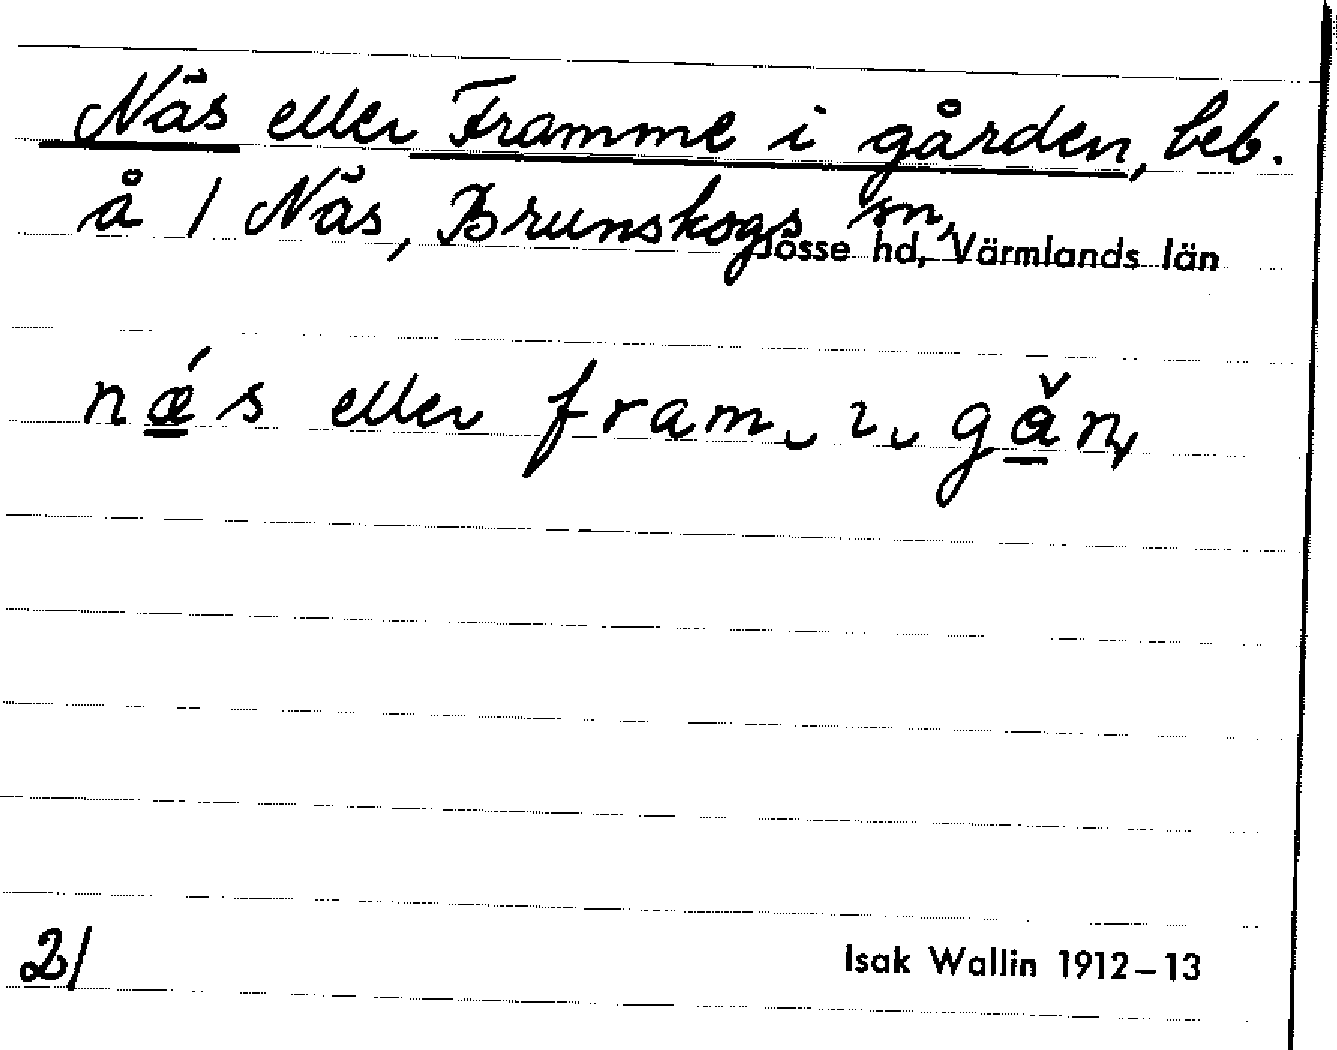 Näs eller Framme i gården, beb.
å 1 Näs, Brunskogs sn,
Jösse hd, Värmlands län
nǽs eller fram i gǎn
2/
Isak Wallin 1912–13